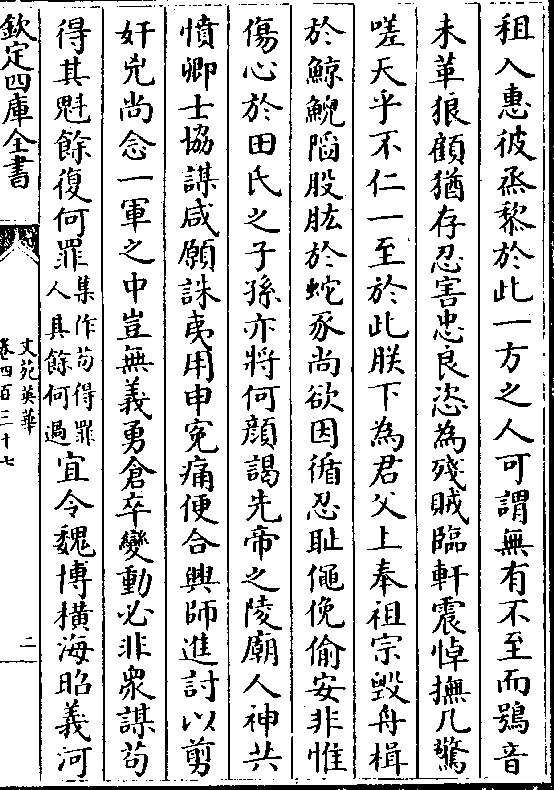 租入惠彼烝黎於此一方之人可謂無有不至而鴞音
未革狼顧猶存忍害忠良恣為殘賊臨軒震悼撫几驚
嗟天乎不仁一至於此朕下為君父上奉祖宗毀舟楫
於鯨鯢陷股肱於蛇豕尚欲因循忍恥僶俛偷安非惟
傷心於田氏之子孫亦將何顔謁先帝之陵廟人神共
憤卿士協謀咸願誅夷用申寃痛便合興師進討以剪
奸兇尚念一軍之中豈無義勇倉卒變動必非衆謀苟
得其魁餘復何罪集作苟得罪人其餘何過宜令魏博橫海昭義河
欽定四庫全書
文苑英華
卷四百三十七
二